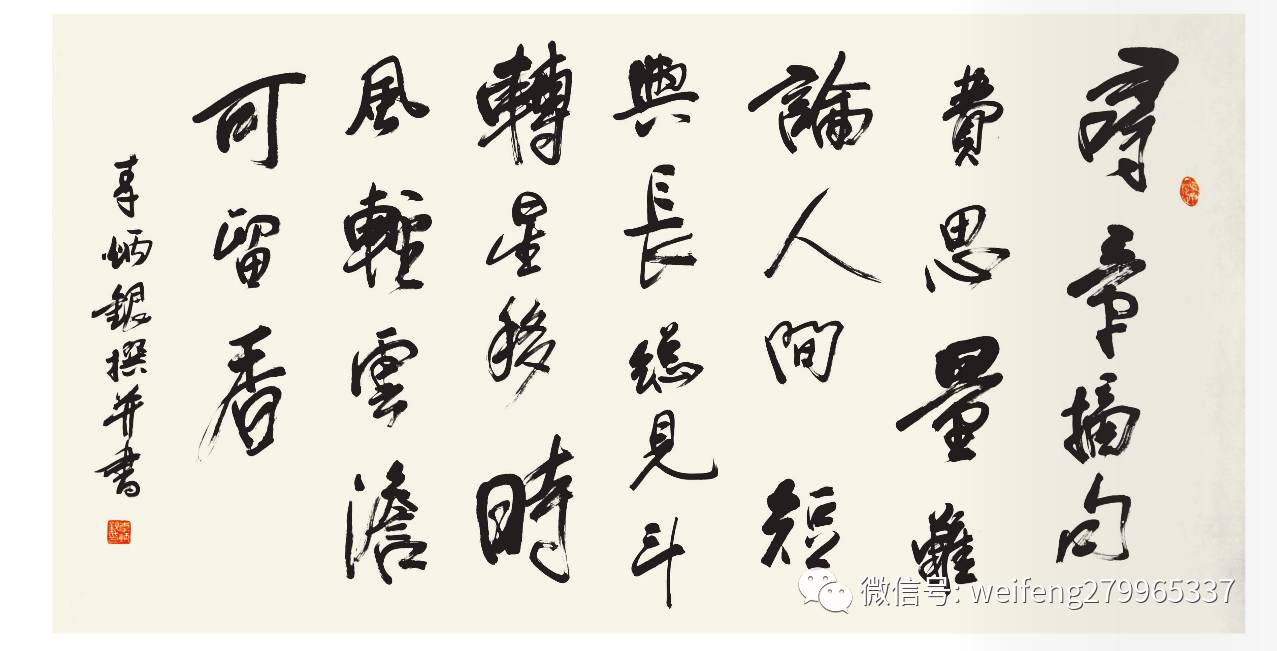 尋章摘句
費思量難
論人間短
與長總見斗
轉星移時
風輕雲澹
可留香
李炳銀撰并書
微信号: weifeng279965337